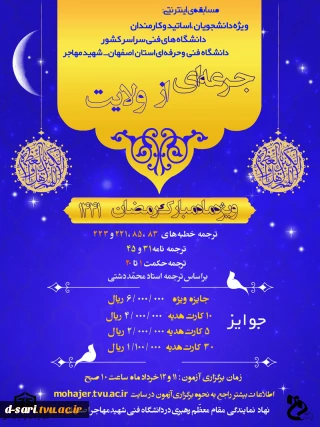 مسابقه‌ی اینترنتی:
ویژه دانشجویان، اساتید و کارمندان
دانشگاه‌های فنی سراسر کشور
دانشگاه فنی و حرفه‌ای استان اصفهان - شهید مهاجر
جرعه‌ای از ولایت
ویژه ماه مبارک رمضان ۱۴۴۱
ترجمه خطبه‌های ۸۳ ،۸۵ ،۲۲۱ و ۲۲۳
ترجمه نامه ۳۱ و ۴۵
ترجمه حکمت ۱ تا ۲۰
براساس ترجمه استاد محمد دشتی
جوایز
جایزه ویژه ۶/۰۰۰/۰۰۰ ریال
۱۰ کارت هدیه ۴/۰۰۰/۰۰۰ ریال
۵ کارت هدیه ۲/۰۰۰/۰۰۰ ریال
۳۰ کارت هدیه ۱/۱۰۰/۰۰۰ ریال
زمان برگزاری آزمون: ۱۱ و ۱۲ خرداد ماه ساعت ۱۰ صبح
اطلاعات بیشتر راجع به نحوه برگزاری آزمون در سایت mohajer.tvu.ac.ir
نهاد نمایندگی مقام معظم رهبری در دانشگاه فنی شهید مهاجر
d-sari.tvu.ac.ir